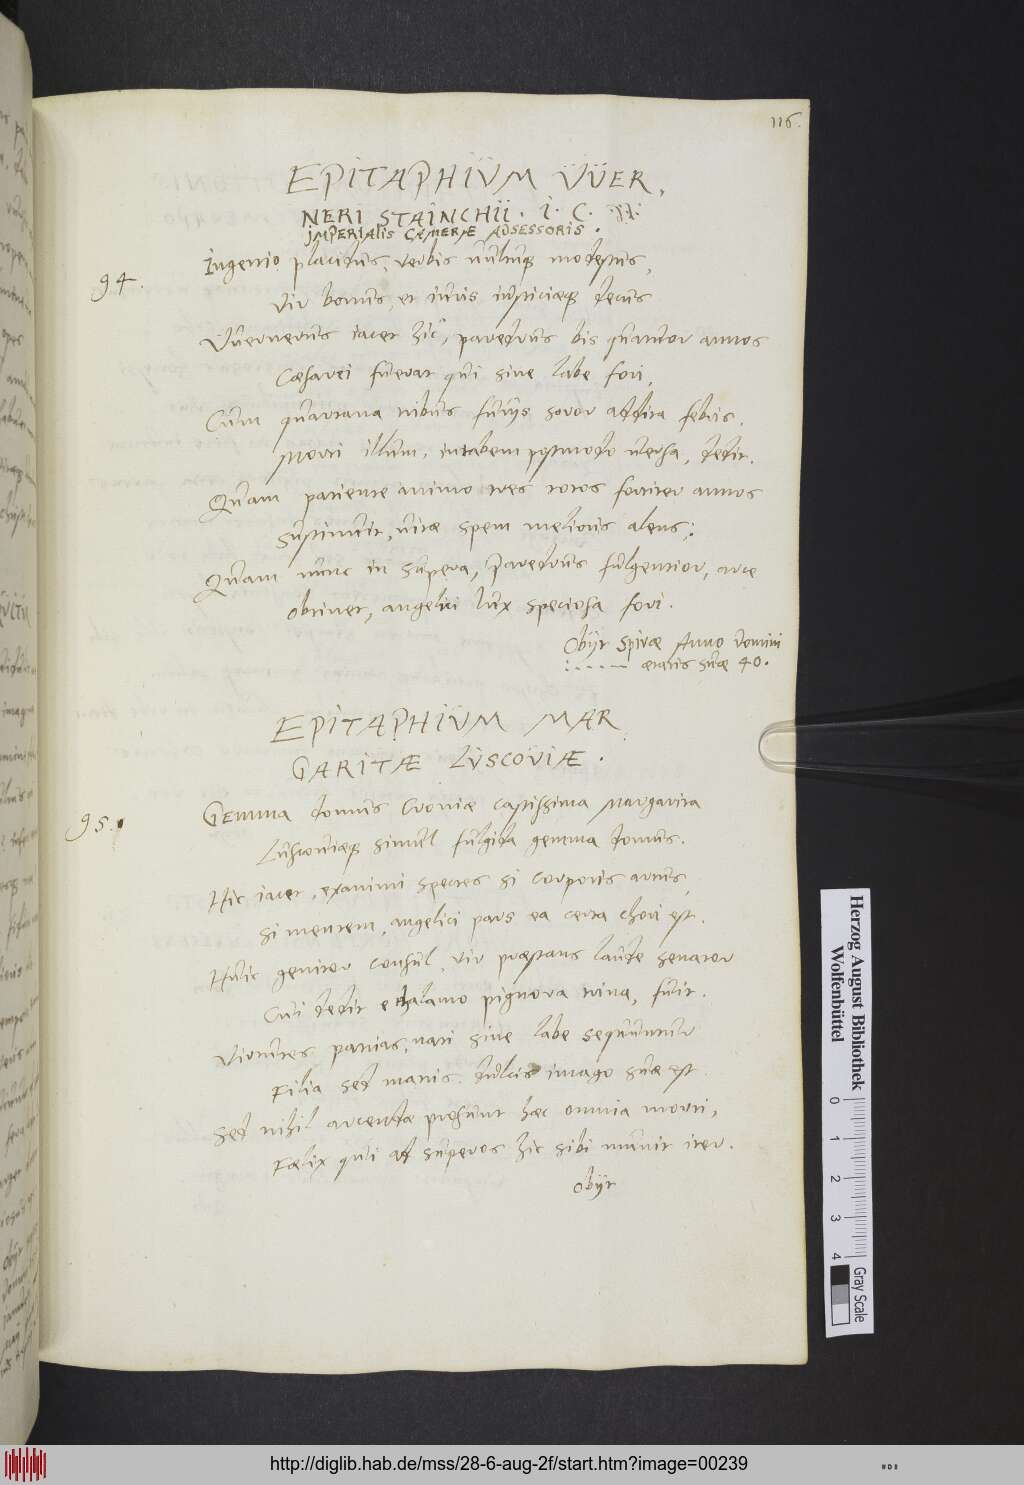 116.
EPITAPHIVM VVER,
NERI STAINCHII. I. C.
IMPERIALIS CAMERÆ ADSESSORIS.
94.
Ingenio placidus, verbis uultuque modestus,
Vir bonus, et iuris iusticiæque decus
VVernerus iacet hic, paredrus bis quatuor annos
Cæsarei fuerat qui sine labe fori,
Cum quartana tribus furijs soror addita febris.
Morti illum, in tabem postmodo uersa, dedit.
Quam patiente animo tres totos fortiter annos
Sustinuit, uitæ spem melioris alens:
Quam nunc in supera, Paredrus fulgentior, arce
Obtinet, angelici lux speciosa fori.
Obijt Spiræ Anno Domini
: . . . . . ætatis suæ 40.
EPITAPHIVM MAR
GARITÆ LVSCOVIÆ.
95.
Gemma domus Croniæ castissima Margarita
Luscouiæque simul fulgida gemma domus.
Hic iacet, exanimi spectes si corporis artus,
Si mentem, angelici pars ea certa chori est.
Huic genitor Consul, vir præstans laude senator
Cui dedit e thalamo pignora trina, fuit.
Virtutes patrias, nati sine labe sequuntur
Filia sed matris dulcis imago suæ est.
Sed nihil arcendæ prosunt hæc omnia morti,
Fælix qui ad superos hic sibi munit iter.
Obijt
Herzog August Bibliothek
Wolfenbüttel
0 1 2 3 4
Gray Scale
http://diglib.hab.de/mss/28-6-aug-2f/start.htm?image=00239